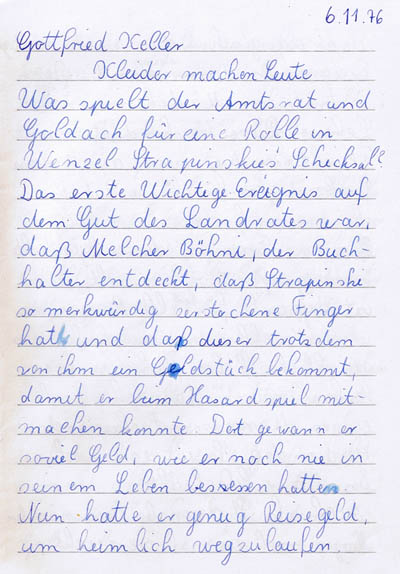 6.11.76
Gottfried Keller
Kleider machen Leute
Was spielt der Amtsrat und
Goldach für eine Rolle in
Wenzel Strapinskie's Schecksal?
Das erste Wichtege Ereignis auf
dem Gut des Landrates war,
daß Melcher Böhni, der Buch-
halter entdeckt, daß Strapinski
so merkwürdig zerstochene Finger
hat und daß dieser trotzdem
von ihm ein Geldstück bekommt,
damit er beim Hasardspiel mit-
machen konnte. Dort gewann er
soviel Geld, wie er noch nie in
seinem Leben besessen hatte.
Nun hatte er genug Reisegeld,
um heimlich wegzulaufen.